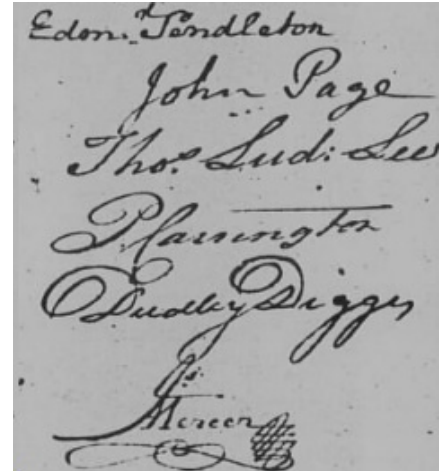 Edmd. Pendleton
John Page
Thos. Lud: Lee
P. Carrington
Dudley Digges
Js. Mercer